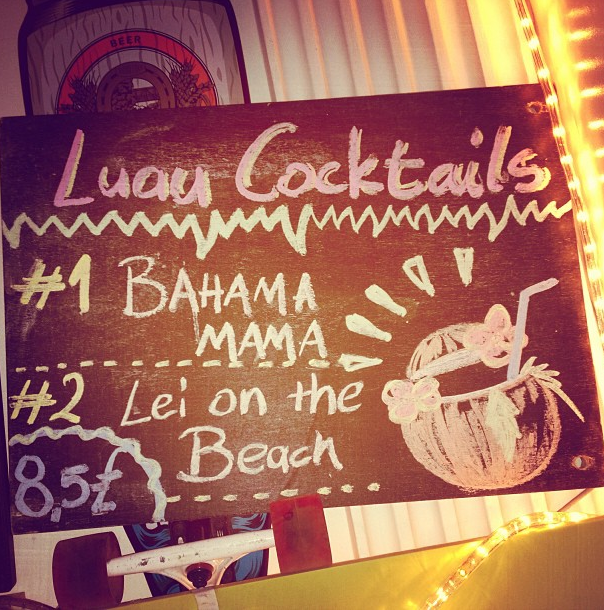 BEER
Luau Cocktails
#1 BAHAMA
MAMA
#2 Lei on the
Beach
8,5£